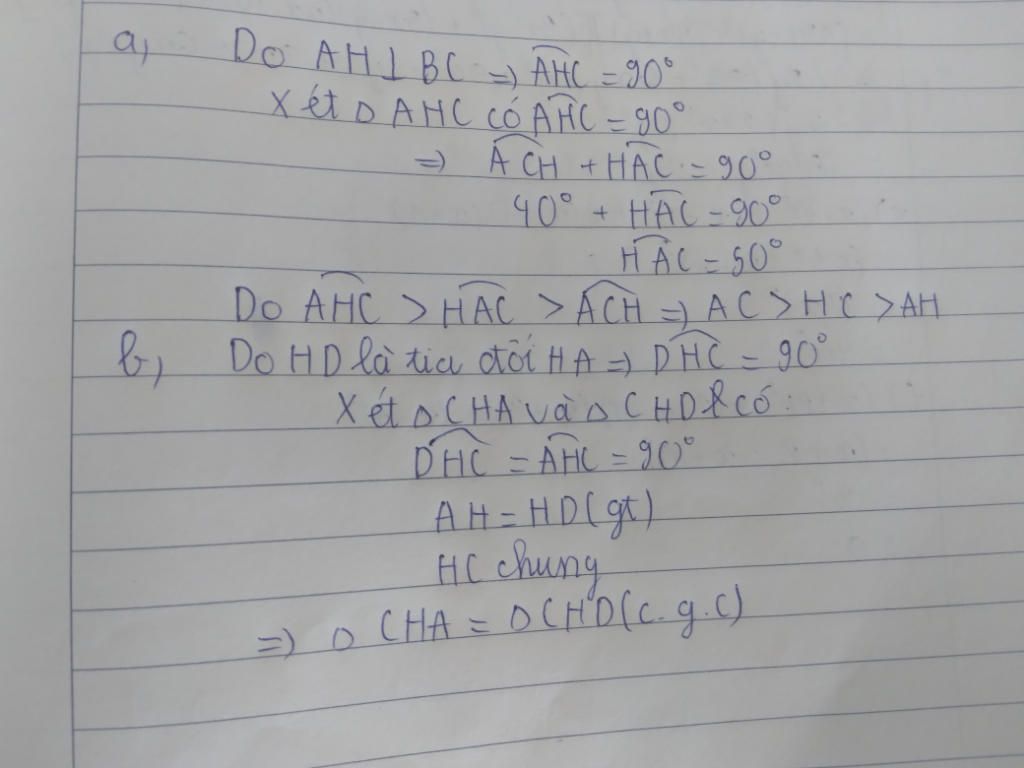 a, Do AH⊥BC => \widehat{AHC} = 90°
Xét △AHC có \widehat{AHC} = 90°
=> \widehat{ACH} + \widehat{HAC} = 90°
40° + \widehat{HAC} = 90°
\widehat{HAC} = 50°
Do \widehat{AHC} > \widehat{HAC} > \widehat{ACH} => AC > HC > AH
b, Do HD là tia đối HA => \widehat{DHC} = 90°
Xét △CHA và △CHD có:
\widehat{DHC} = \widehat{AHC} = 90°
AH = HD (gt)
HC chung
=> △CHA = △CHD (c.g.c)